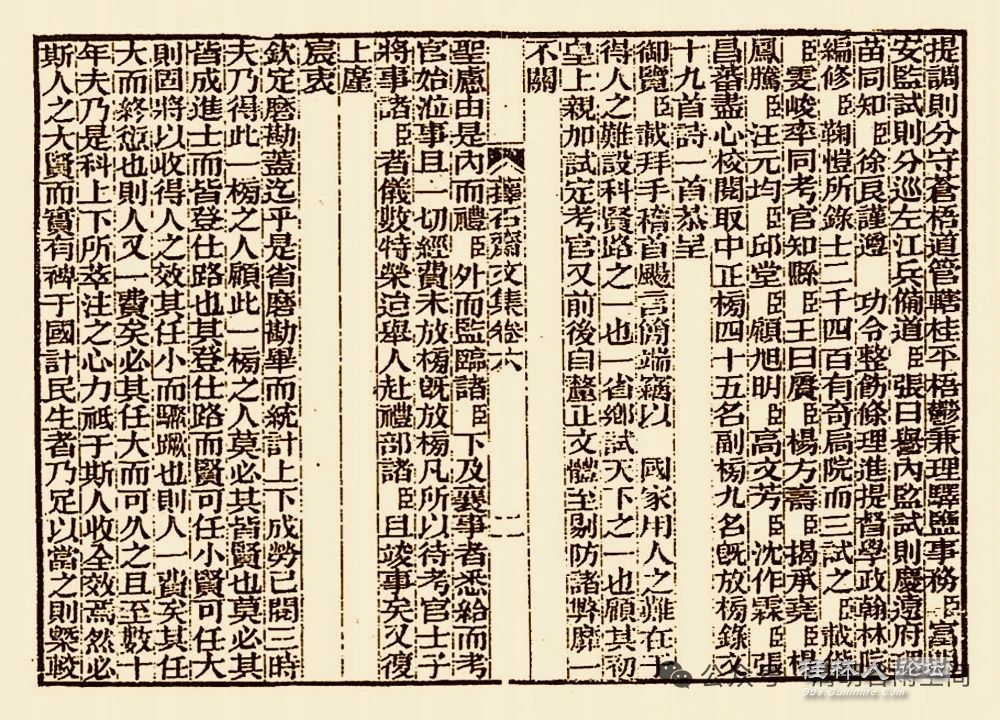 提調則分守蒼梧道管轄桂平梧鬱兼理驛鹽事務臣富
安監試則分巡左江兵備道臣張曰譽內監試則慶遠府理
苗同知臣徐良謹遵 功令整飭條理進提督學政翰林院
編修臣鞠愷所錄士二千四百有奇扃院而三試之臣載偕
臣雯峻率同考官知縣臣王曰賡臣楊方壽臣揭承堯臣楊
鳳騰臣汪元均臣邱堂臣顧旭明臣高文芳臣沈作霖臣張
昌蕃盡心校閱取中正榜四十五名副榜九名旣放榜錄文
十九首詩一首恭呈
御覽臣載拜手稽首颺言簡端竊以 國家用人之難在于
得人之難設科賢路之一也一省鄉試天下之一也顧其初
皇上親加試定考官又前後自釐正文體至剔防諸弊靡一
不關
蘀石齋文集卷六
二
聖慮由是內而禮臣外而監臨諸臣下及襄事者悉給而考
官始涖事且一切經費未放榜旣放榜凡所以待考官士子
將事諸臣者儀數特榮迨舉人赴禮部諸臣且竣事矣又復
上塵
宸衷
欽定磨勘蓋迄乎是省磨勘畢而統計上下成勞已閱三時
夫乃得此一榜之人顧此一榜之人莫必其皆賢也莫必其
皆成進士而皆登仕路也其登仕路而賢可任小賢可任大
則固將以收得人之效其任小而驟蹶也則人一費矣其任
大而終愆也則人又一費矣必其任大而可久之且至數十
年夫乃是科上下所萃注之心力祇于斯人收全效焉然必
斯人之大賢而實有裨于國計民生者乃足以當之則槩較
公众号
桂林人论坛
bbs.guilinlife.com